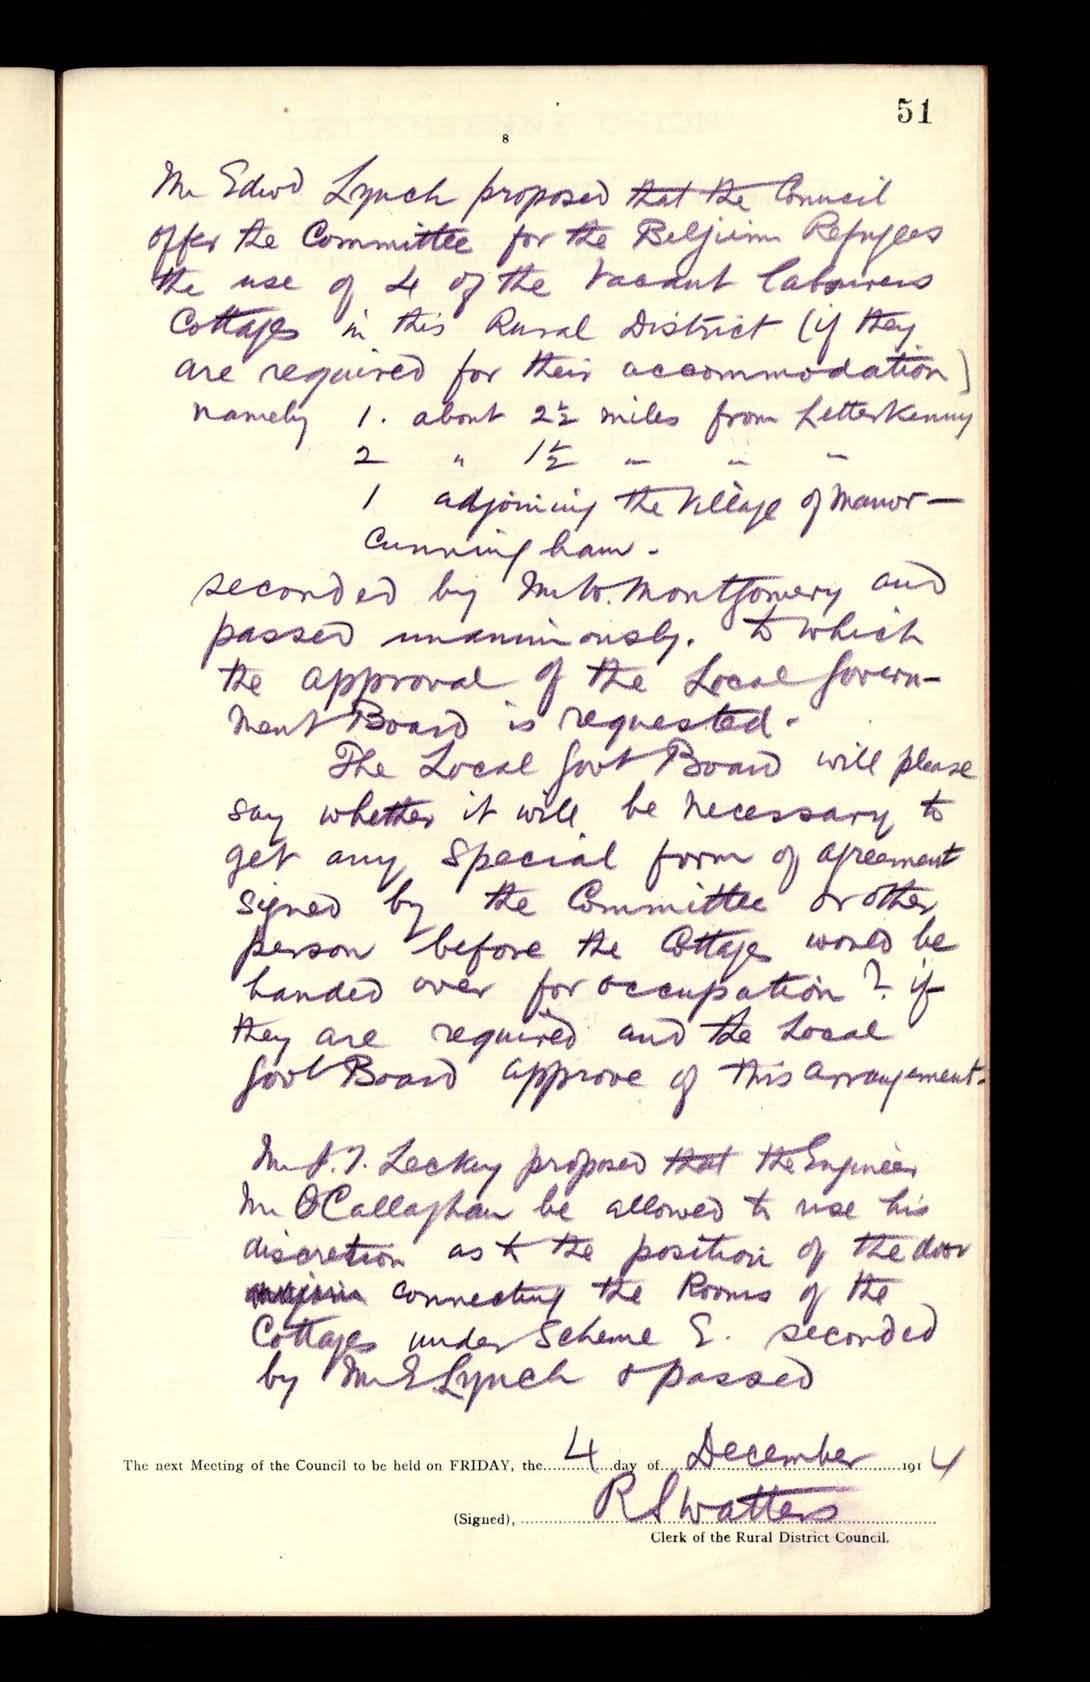 51
8
Mr Edwd Lynch proposed that the Council
offer the Committee for the Belgium Refugees
the use of 4 of the Vacant labourers
Cottages in this Rural District (if they
are required for their accommodation)
namely 1. about 2½ miles from Letterkenny
2 " 1½ " " "
1 adjoining the Village of Manor-
Cunningham.
seconded by Mr W. Montgomery and
passed unanimously. to which
the approval of the Local Govern-
ment Board is requested.
The Local Govt Board will please
say whether it will be necessary to
get any special form of agreement
signed by the Committee or other
person before the Cottages would be
handed over for occupation? if
they are required and the Local
Govt Board approve of this arrangement.
Mr J. T. Leckey proposed that the Engineer
Mr O'Callaghan be allowed to use his
discretion as to the position of the door
connecting the Rooms of the
Cottages under Scheme E. seconded
by Mr E Lynch & passed
The next Meeting of the Council to be held on FRIDAY, the 4 day of December 1914
(Signed), R S Watters
Clerk of the Rural District Council.